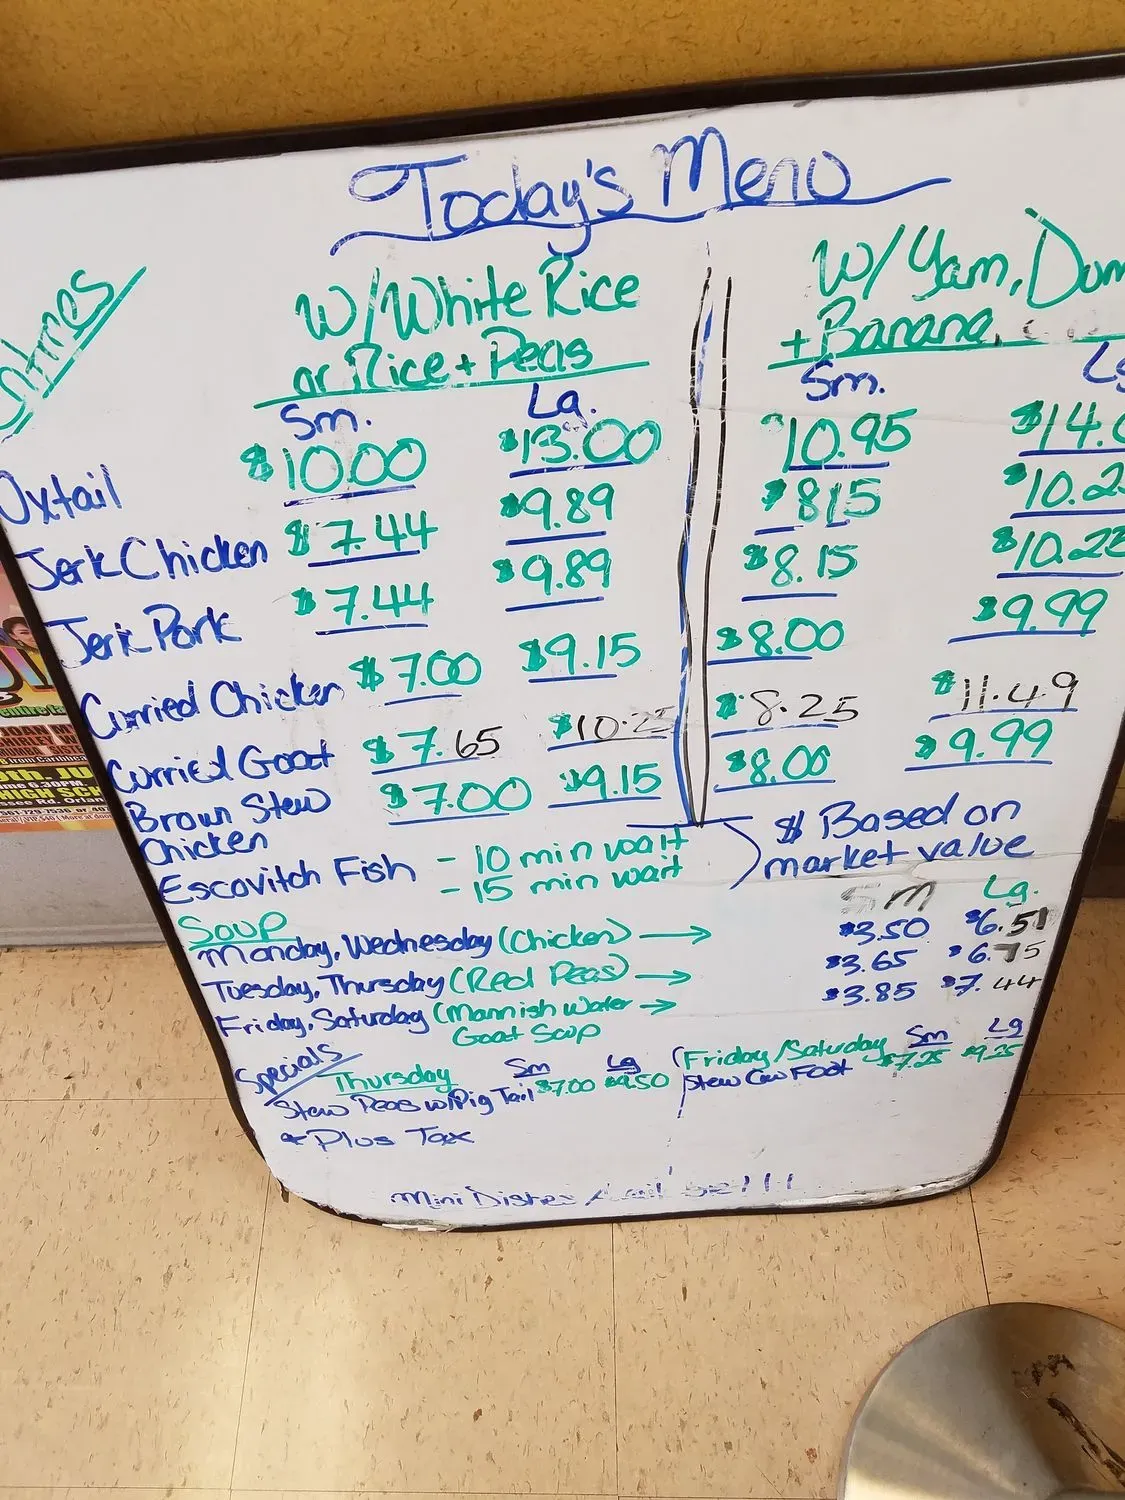 Today's Menu
W/White Rice
or Rice + Peas
W/ Yam, Dum
+ Banana
Sm. Lg. Sm. Lg
Oxtail $10.00 $13.00 $10.95 $14.
Jerk Chicken $7.44 $9.89 $8.15 $10.2
Jerk Pork $7.44 $9.89 $8.15 $10.2
Curried Chicken $7.00 $9.15 $8.00 $9.99
Curried Goat $7.65 $10.25 $8.25 $11.49
Brown Stew
Chicken $7.00 $9.15 $8.00 $9.99
Escovitch Fish - 10 min wait
- 15 min wait
$ Based on
market value
Soup Sm Lg.
Monday, Wednesday (Chicken) → $3.50 $6.51
Tuesday, Thursday (Red Peas) → $3.65 $6.75
Friday, Saturday (Mannish Water → $3.85 $7.44
Goat Soup
Specials
Thursday Sm Lg
Stew Peas w/Pig Tail $7.00 $9.50
(Friday/Saturday Sm Lg
Stew Cow Foot $7.25 $9.25
* Plus Tax
Mini Dishes
HIGH SCH